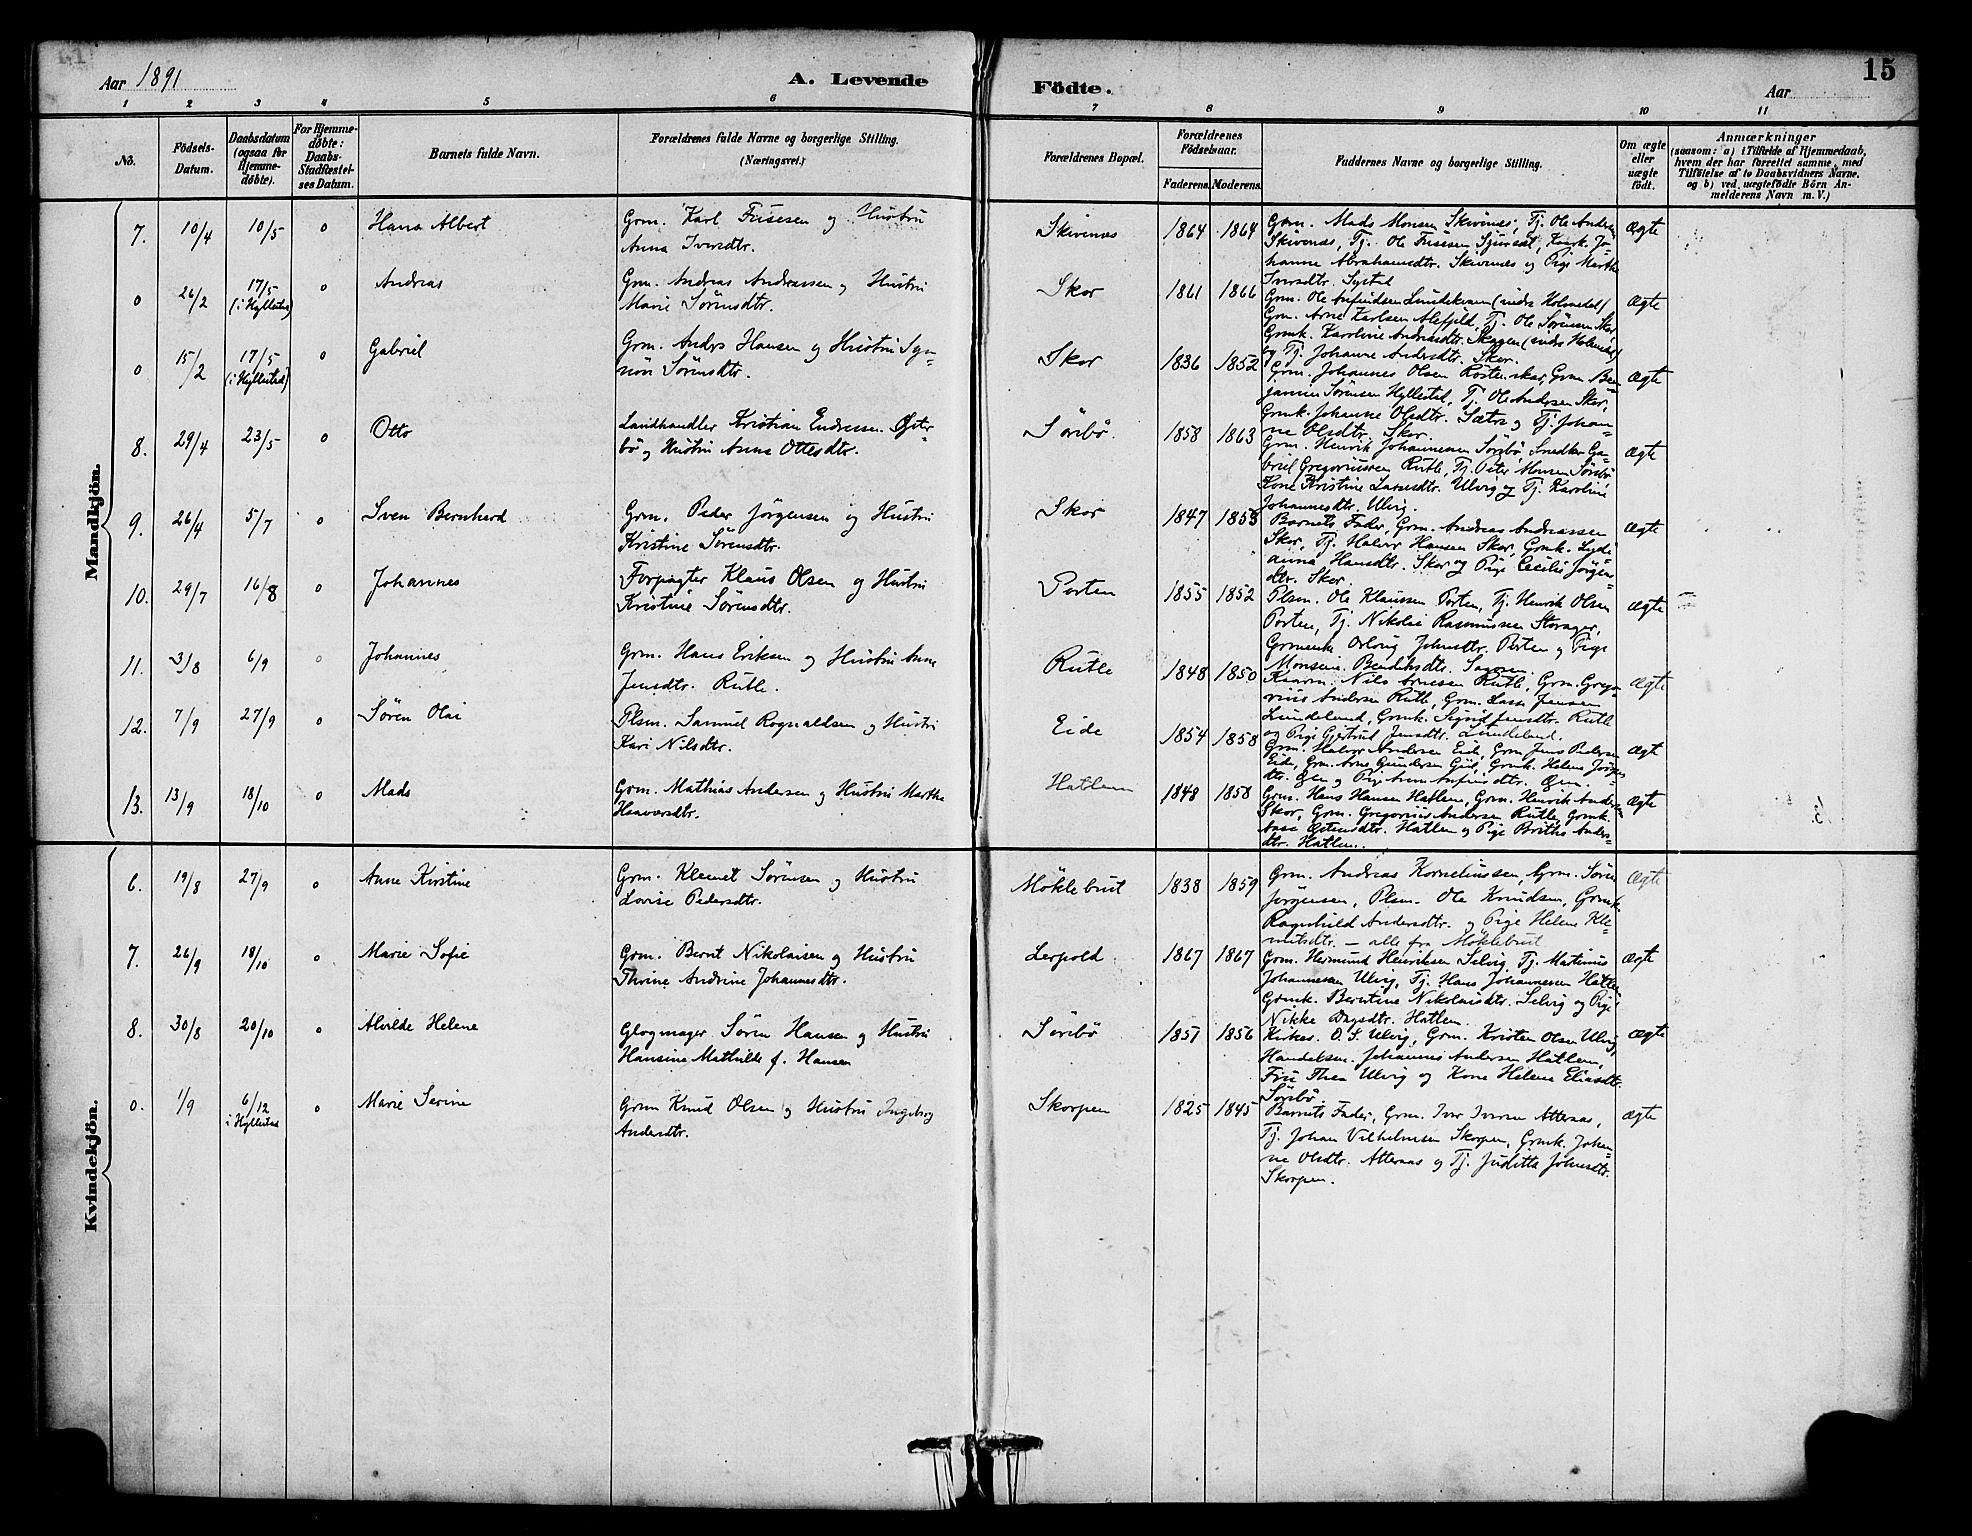 15
Aar 1891
A. Levende
Födte.
Aar
1 2 3 4 5 6 7 8 9 10 11
No.
Födsels-
Datum.
Daabsdatum
(ogsaa for
Hjemme-
döbte).
For Hjemme-
döbte:
Daabs-
Stadfæstel-
ses Datum.
Barnets fulde Navn.
Forældrenes fulde Navne og borgerlige Stilling.
(Næringsvei.)
Forældrenes Bopæl.
Forældrenes
Födselsaar.
Faderens. Moderens.
Faddernes Navne og borgerlige Stilling.
Om ægte
eller
uægte
födt.
Anmærkninger
(saasom: a) i Tilfælde af Hjemmedaab,
hvem der har forrettet samme, med
Tilföielse af to Daabsvidners Navne.
og b) ved uægtefödte Börn An-
melderens Navn m. V.)
Mandkjön.
7. 10/4 10/5 0 Hans Albert
Grm. Karl og Hustru
Anna Iversdtr.
Skivenes 1864 1864
Grm. Mads Monsen Skivenes, Tj. Ole Andersen
Skivenes, Tj. Ole
hanne Abrahamsdtr. Skivenes og Pige Marthe
Iversdtr. Systad
Ægte
0 26/2 17/5
(i Hyllestad)
0 Andreas
Grm. Andreas Andreassen og Hustru
Marie Sörensdtr.
Skor 1861 1866
Grm. Ole Anfindsen (indre Holmedal)
Grm. Arne Karlsen Tj. Ole Sörensen Skor
Grmk. Karoline Andreasdtr. Skagen (indre Holmedal)
og Tj. Johanne Andersdtr. Skor.
Ægte
0 15/2 17/5
(i Hyllestad)
0 Gabriel
Grm. Anders Hansen og Hustru Syn-
növe Sörensdtr.
Skor 1836 1852
Grm. Johannes Olsen Grm. Ben-
jamin Sörensen Hyllestad, Tj. Ole Andersen Skor,
Grmk. Johanne Olsdtr. Sætre og Tj. Johan-
ne Olsdtr. Skor.
Ægte
8. 29/4 23/5 0 Otto
Landhandler Kristian Endresen Öster-
bö og Hustru Anna Ottesdtr.
Sörebö. 1858 1863
Grm. Henrik Johannesen Söreböe, Snedker Ga-
briel Gregoriussen Rutle, Tj. Peter Monsen Söreböe
Kone Kristine Lassesdtr. Ulvig og Tj. Karoline
Johannesdtr. Ulvig.
Ægte
9. 26/4 5/7 0 Sven Bernhard
Grm. Peder Jørgensen og Hustru
Kristine Sörensdtr.
Skor 1847 1853
Barnets Fader, Grm. Andreas Andreassen
Skor, Tj. Halvor Hansen Skor, Grmk. Lydi-
anna Hansdtr. Skor og Pige Cecilie Jørgens-
dtr. Skor.
Ægte
10. 29/7 16/8 0 Johannes
Forpagter Klaus Olsen og Hustru
Kristine Sörensdtr.
Porten 1855 1852
Plsm. Ole Klaussen Porten, Tj. Henrik Olsen
Porten, Tj. Nikolai Rasmussen Storager,
Porten og Pige
Monsine Bendiksdtr.
Ægte
11. 3/8 6/9 0 Johannes
Grm. Hans Eriksen og Hustru Anne
Jensdtr. Rutle.
Rutle 1848 1850
Kaarm. Nils Arnesen Rutle, Grm. Grego-
rius Andersen Rutle, Grm. Lasse Jensen
Lundeland, Grmk. Sigrid Jensdtr. Rutle
og Pige Gjertrud Jensdtr. Lundeland.
Ægte
12. 7/9 27/9 0 Sören Olai
Plsm. Samuel Rognaldsen og Hustru
Kari Nilsdtr.
Eide 1854 1858
Grm. Halvor Andersen Eide, Grm. Jens Pedersen
Eide, Grm. Arne Gundersen Grmk. Helene Jørgens
dtr. Øen og Pige Anna Anfinsdtr. Øen.
Ægte
13. 13/9 18/10 0 Mads
Grm. Mathias Andersen og Hustru Marthe
Haavarsdtr.
Hatlem 1848 1858
Grm. Hans Hansen Hatlem, Grm. Henrik Andersen
Skor, Grm. Gregorius Andersen Rutle, Grmk.
Anne Østensdtr. Hatlem og Pige Brithe Anders-
dtr. Hatlem.
Ægte
Kvindekjön.
6. 19/8 27/9 0 Anne Kirstine
Grm. Klemet Sörensen og Hustru
Lovise Pedersdtr.
Möklebust 1838 1859
Grm. Andreas Korneliussen, Grm. Sören
Jørgensen, Plsm. Ole Knudsen, Grmk.
Ragnhild Andersdtr. og Pige Helene Kle-
metsdtr. – alle fra Möklebust
Ægte
7. 26/9 18/10 0 Marie Sofie
Grm. Bernt Nikolaisen og Hustru
Thrine Andrine Johannesdtr.
Leepold 1867 1867
Grm. Hermund Henriksen Selvig, Tj. Martinus
Johannessen Ulvig, Tj. Hans Johannessen Hatlem
Grmk. Berntine Nikolaisdtr. Selvig og Pige
Nikke Dagsdtr. Hatlem.
Ægte
8. 30/8 20/10 0 Alvilde Helene
Glogmager Sören Hansen og Hustru
Hansine Mathilde f. Hansen
Söreböe 1857 1856
Kirkes. O. S. Ulvig, Grm. Kristen Olsen Ulvig,
Handelsm. Johannes Andersen Hatlem,
Fru Thea Ulvig og Kone Helene Eliasdtr.
Söreböe
Ægte
0. 1/9 6/12
i Hyllestad
0 Marie Serine
Grm. Knud Olsen og Hustru Ingeborg
Andersdtr.
Skorpen 1825 1845
Barnets Fader, Grm. Iver Iversen Atteraas,
Tj. Johan Vilhelmsen Skorpen, Grmk. Johan-
ne Olsdtr. Atteraas og Tj. Juditta Johnsdtr.
Skorpen.
Ægte